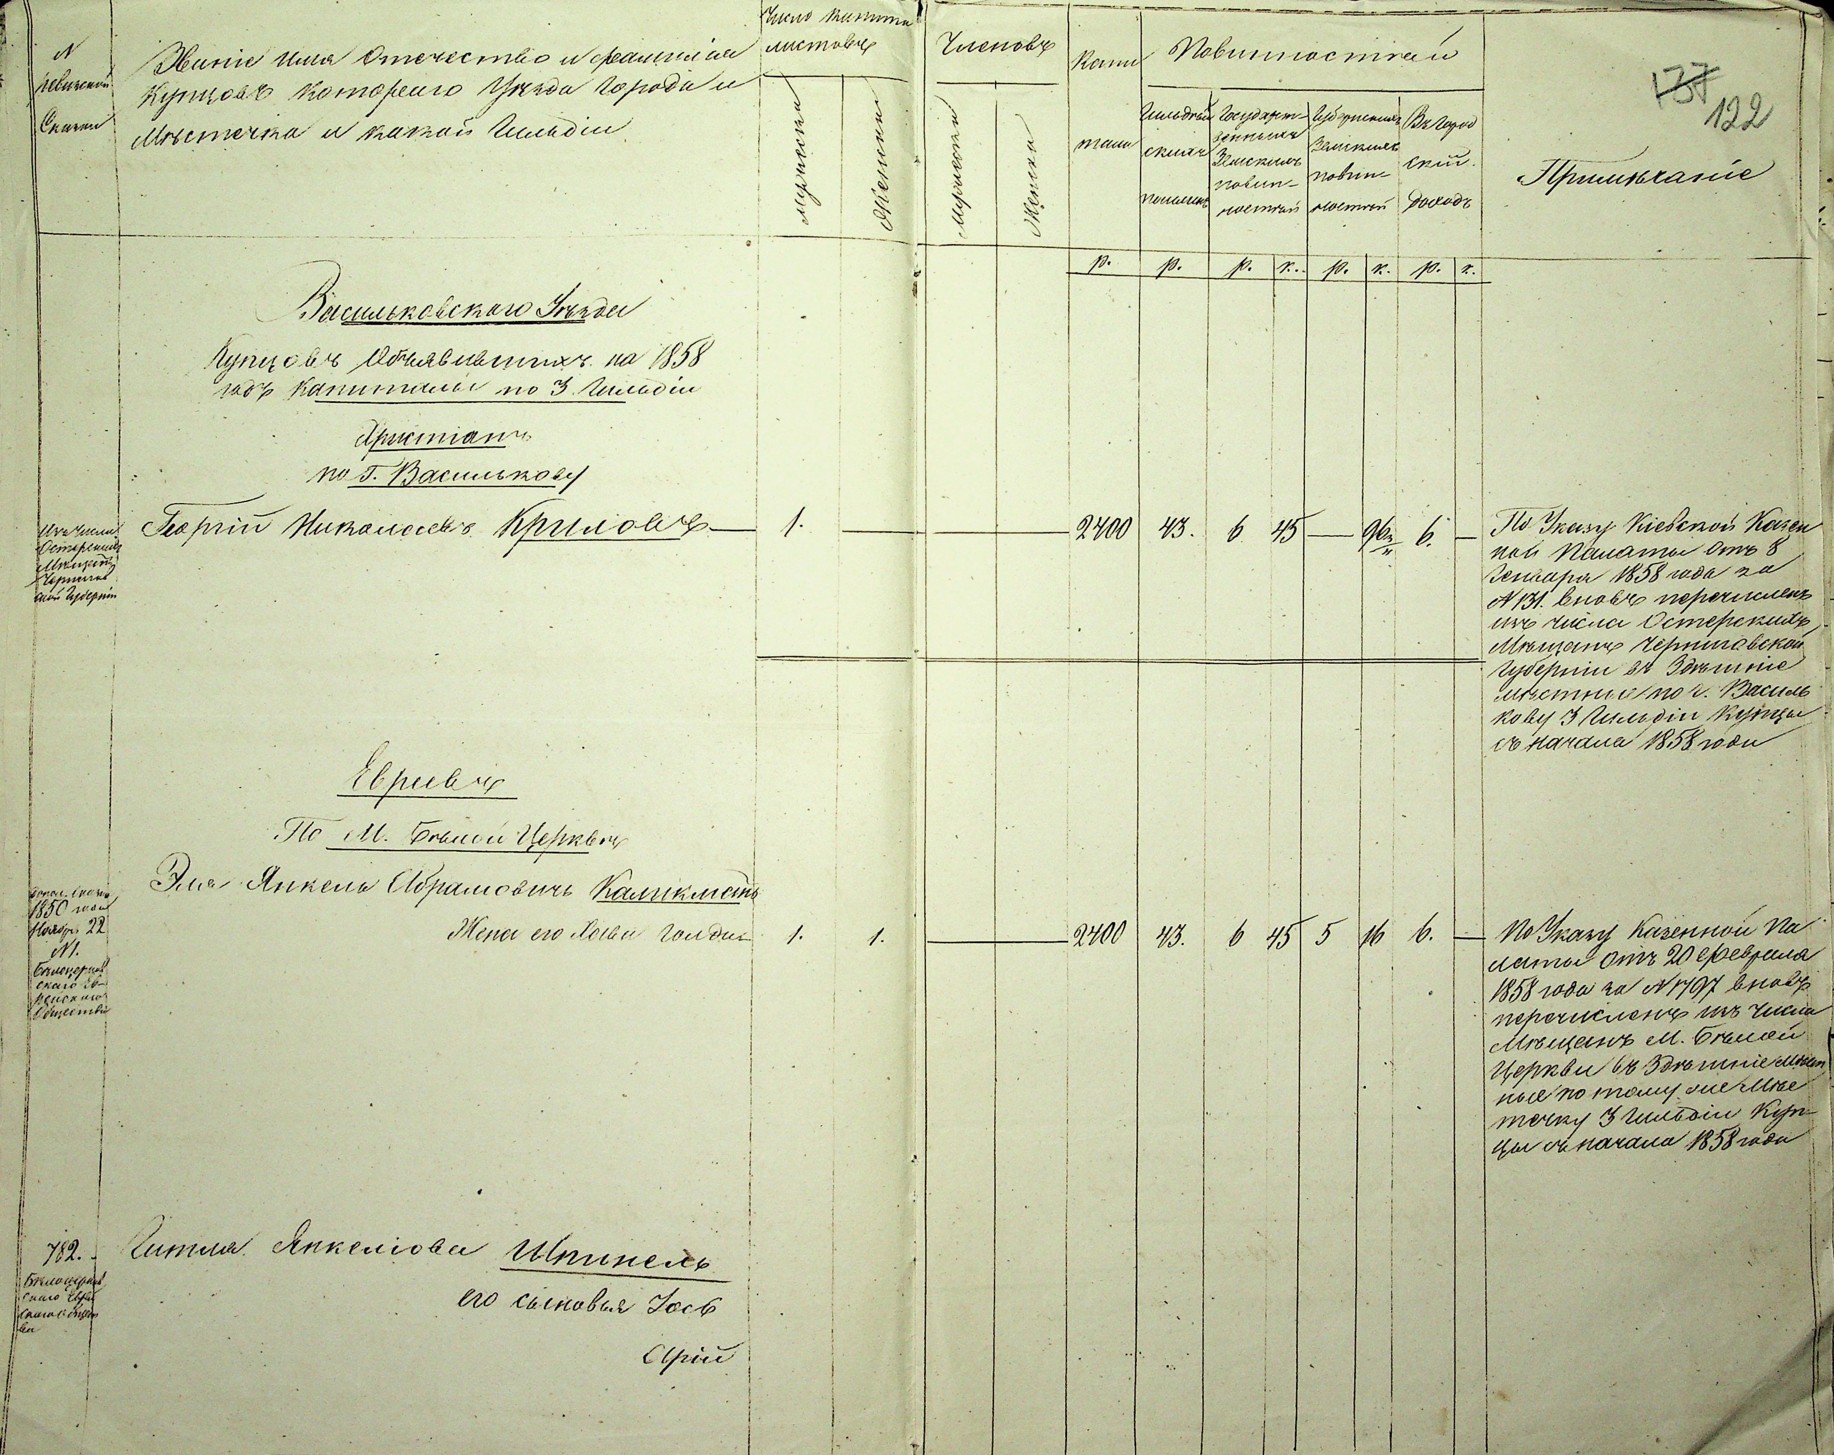 137
122
№
Ревизской
Сказки
Званіе имя Отечество и фамилія
Купцовъ котораго Уѣзда Города и
Мѣстечка и какой Гильдіи
Число капита
листовъ
Мужеска
Женска
Членовъ
Мужеска
Женска
Капи
тала
Повинностей
Гильдей
скихъ
пошлинъ
Государст-
венныхъ
Земскихъ
повин-
ностей
Губернскихъ
Земскихъ
повин-
ностей
Въ Город
скій
доходъ
Примѣчаніе
р. р. р. к. р. к. р. к.
Васильковского Уѣзда
Купцовъ Объявившихъ на 1858
годъ Капиталы по 3 Гильдіи
Христіанъ
по Г. Василькову
Изъ числа
Остерскихъ
Мѣщанъ
Чернигов
ской Губерніи
Георгій Николаевъ Криловъ 1. 2400 43. 6 45 — 96 6. —
По Указу Кіевской Казен
ной Палаты Отъ 8
Генваря 1858 года за
№ 131. вновь перечисленъ
изъ числа Остерскихъ
Мѣщанъ Черниговской
Губерніи въ Здѣшніе
мѣстные по г. Василь
кову 3 Гильдіи Купцы
съ начала 1858 года
Евреевъ
По М. Бѣлой Церквѣ
Эля Янкель Абрамовичъ
допол. сказка
1850 года
Ноябр. 22
№ 1.
Бѣлоцерков
скаго Ев-
рейскаго
Общества
Жена его 1. 1. 2400 43. 6 45 5 16 6. —
По Указу Казенной Па
латы Отъ 20 Февраля
1858 года за № 1797 вновь
перечисленъ изъ числа
Мѣщанъ М. Бѣлой
Церкви въ Здѣшніе мѣст
ные по тому же Мѣс
течку 3 Гильдіи Куп-
цы съ начала 1858 года
782.
Бѣлоцерков
скаго Еврей
скаго Общест
ва
Гитля Янкеліова Шпинель
его сыновья Іось
Арій